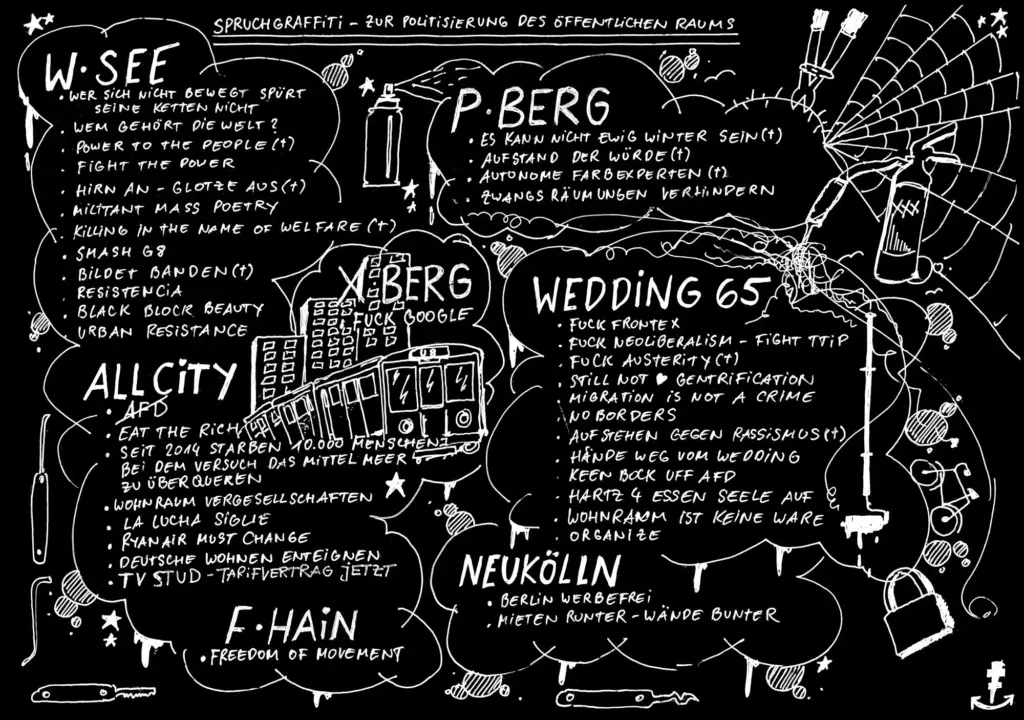 SPRUCHGRAFFITI – ZUR POLITISIERUNG DES ÖFFENTLICHEN RAUMS
W•SEE
• WER SICH NICHT BEWEGT SPÜRT
SEINE KETTEN NICHT
• WEM GEHÖRT DIE WELT?
• POWER TO THE PEOPLE (†)
• FIGHT THE POWER
• HIRN AN – GLOTZE AUS (†)
• MILITANT MASS POETRY
• KILLING IN THE NAME OF WELFARE (†)
• SMASH G8
• BILDET BANDEN (†)
• RESISTENCIA
• BLACK BLOCK BEAUTY
• URBAN RESISTANCE
P•BERG
• ES KANN NICHT EWIG WINTER SEIN (†)
• AUFSTAND DER WÜRDE (†)
• AUTONOME FARBEXPERTEN (†)
• ZWANGSRÄUMUNGEN VERHINDERN
X•BERG
• FUCK GOOGLE
U8
WEDDING 65
• FUCK FRONTEX
• FUCK NEOLIBERALISM – FIGHT TTIP
• FUCK AUSTERITY (†)
• STILL NOT ♥ GENTRIFICATION
• MIGRATION IS NOT A CRIME
NO BORDERS
• AUFSTEHEN GEGEN RASSISMUS (†)
• HÄNDE WEG VOM WEDDING
• KEEN BOCK UFF AFD
• HARTZ 4 ESSEN SEELE AUF
• WOHNRAUM IST KEINE WARE
• ORGANIZE
XXX
ALLCITY
• AFD
• EAT THE RICH
• SEIT 2014 STARBEN 10.000 MENSCHEN
BEI DEM VERSUCH DAS MITTELMEER
ZU ÜBERQUEREN
• WOHNRAUM VERGESELLSCHAFTEN
• LA LUCHA SIGUE
• RYANAIR MUST CHANGE
• DEUTSCHE WOHNEN ENTEIGNEN
• TV STUD – TARIFVERTRAG JETZT
F•HAIN
• FREEDOM OF MOVEMENT
NEUKÖLLN
• BERLIN WERBEFREI
• MIETEN RUNTER – WÄNDE BUNTER